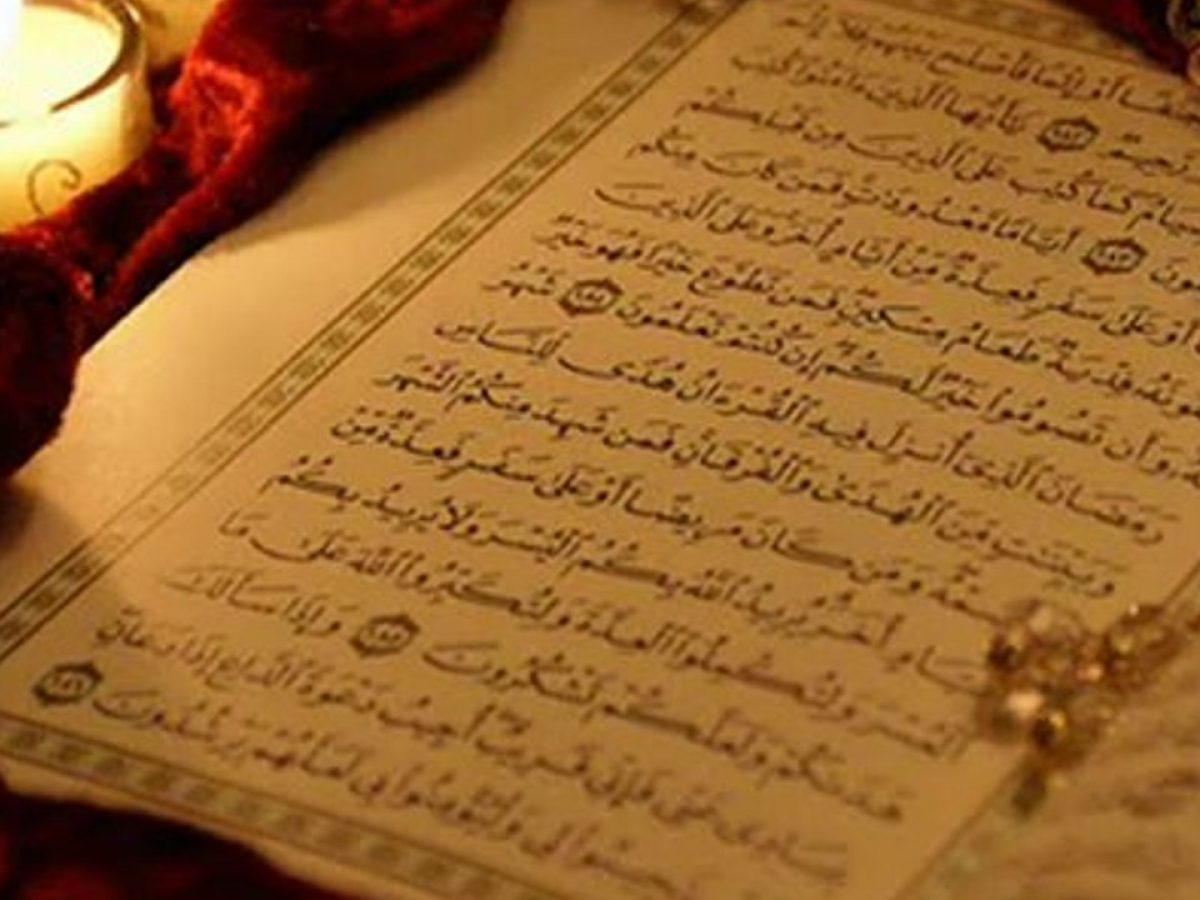 أَوْ إِثْمًا فَأَصْلَحَ بَيْنَهُمْ فَلَا إِثْمَ
رَّحِيمٌ ١٨٢ يَٰٓأَيُّهَا ٱلَّذِينَ ءَامَنُوا۟ كُتِبَ
كَمَا كُتِبَ عَلَى ٱلَّذِينَ مِن قَبْلِكُمْ
١٨٣ أَيَّامًا مَّعْدُودَٰتٍ فَمَن كَانَ مِنكُم
أَوْ عَلَىٰ سَفَرٍ فَعِدَّةٌ مِّنْ أَيَّامٍ أُخَرَ وَعَلَى ٱلَّذِينَ
فِدْيَةٌ طَعَامُ مِسْكِينٍ فَمَن تَطَوَّعَ خَيْرًا فَهُوَ خَيْرٌ
وَأَن تَصُومُوا۟ خَيْرٌ لَّكُمْ إِن كُنتُمْ تَعْلَمُونَ ١٨٤ شَهْرُ
رَمَضَانَ ٱلَّذِىٓ أُنزِلَ فِيهِ ٱلْقُرْءَانُ هُدًى لِّلنَّاسِ
وَبَيِّنَٰتٍ مِّنَ ٱلْهُدَىٰ وَٱلْفُرْقَانِ فَمَن شَهِدَ مِنكُمُ ٱلشَّهْرَ
وَمَن كَانَ مَرِيضًا أَوْ عَلَىٰ سَفَرٍ فَعِدَّةٌ مِّنْ
أُخَرَ يُرِيدُ ٱللَّهُ بِكُمُ ٱلْيُسْرَ وَلَا يُرِيدُ بِكُمُ
ٱلْعُسْرَ وَلِتُكْمِلُوا۟ ٱلْعِدَّةَ وَلِتُكَبِّرُوا۟ ٱللَّهَ عَلَىٰ مَا
هَدَىٰكُمْ وَلَعَلَّكُمْ تَشْكُرُونَ ١٨٥ وَإِذَا سَأَلَكَ
عِبَادِى عَنِّى فَإِنِّى قَرِيبٌ أُجِيبُ دَعْوَةَ ٱلدَّاعِ إِذَا دَعَانِ
لِى وَلْيُؤْمِنُوا۟ بِى لَعَلَّهُمْ يَرْشُدُونَ ١٨٦